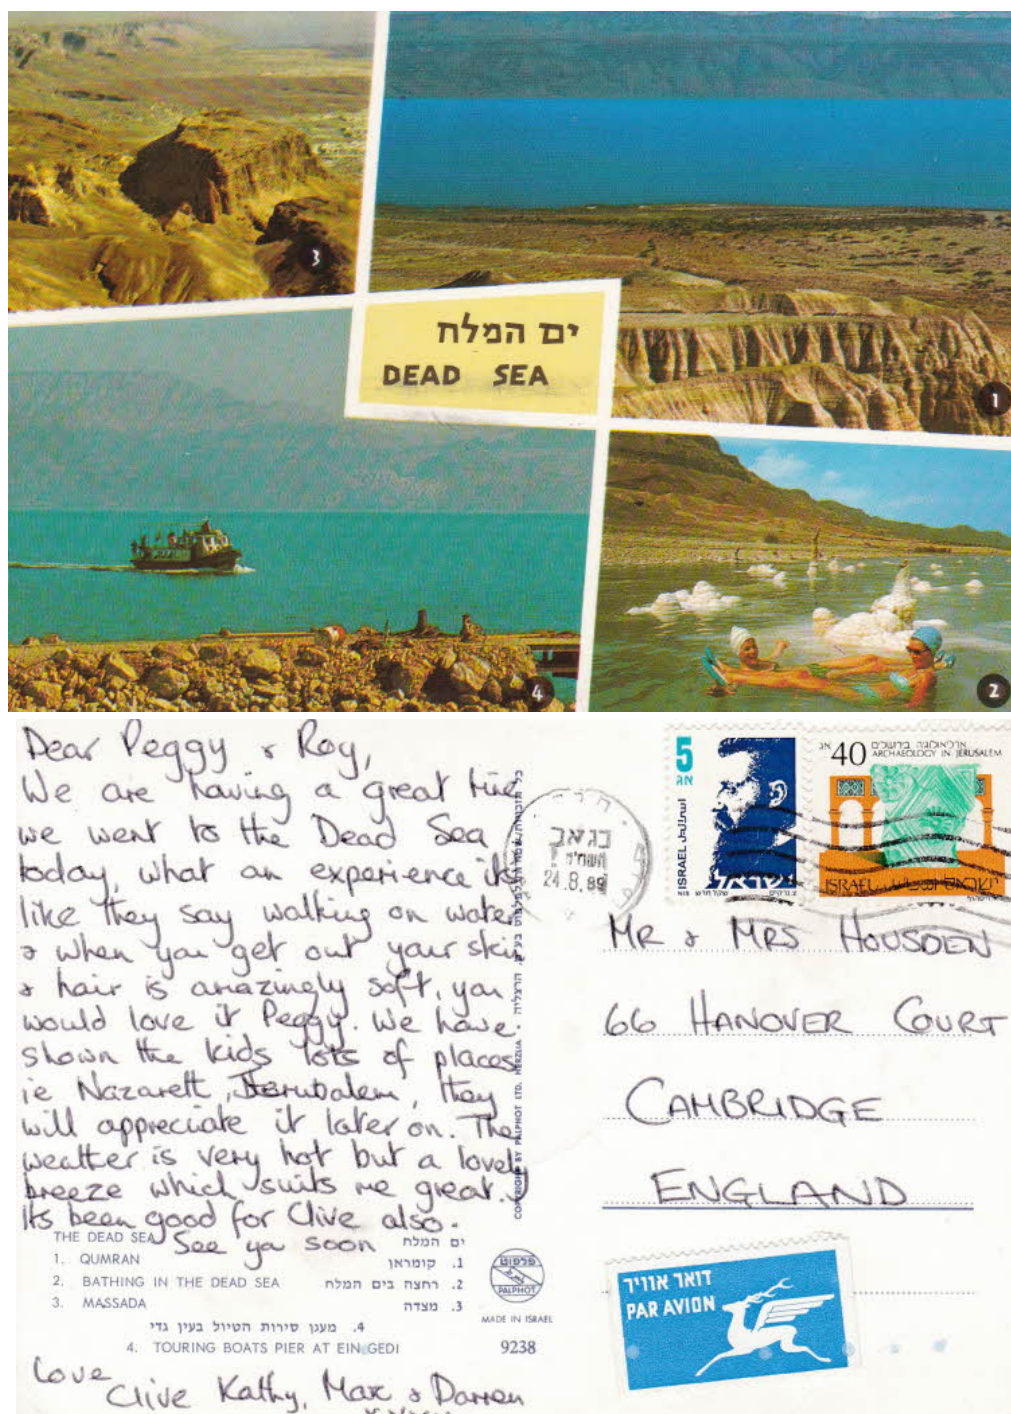 3
ים המלח
DEAD SEA
1
4
2
Dear Peggy & Roy,
We are having a great time
we went to the Dead Sea
today, what an experience its
like they say walking on water
& when you get out your skin
& hair is amazingly soft, you
would love it Peggy. We have
shown the kids lots of places
ie Nazareth, Jerusalem, they
will appreciate it later on. The
weather is very hot but a lovely
breeze which suits me great.
Its been good for Clive also.
See ya soon
THE DEAD SEA
ים המלח
1. QUMRAN
1. קומראן
2. BATHING IN THE DEAD SEA
2. רחצה בים המלח
3. MASSADA
3. מצדה
4. מעגן סירות הטיול בעין גדי
4. TOURING BOATS PIER AT EIN GEDI
Love
Clive Kathy, Max & Darren
פלפוט
PALPHOT
MADE IN ISRAEL
9238
COPYRIGHT BY PALPHOT LTD. HERZLIA · הרצליה
24.8.89
5
אג
ISRAEL
ישראל
40 אג
ארכיאולוגיה בירושלים
ARCHAEOLOGY IN JERUSALEM
ISRAEL ישראל
MR & MRS HOUSDEN
66 HANOVER COURT
CAMBRIDGE
ENGLAND
דואר אוויר
PAR AVION